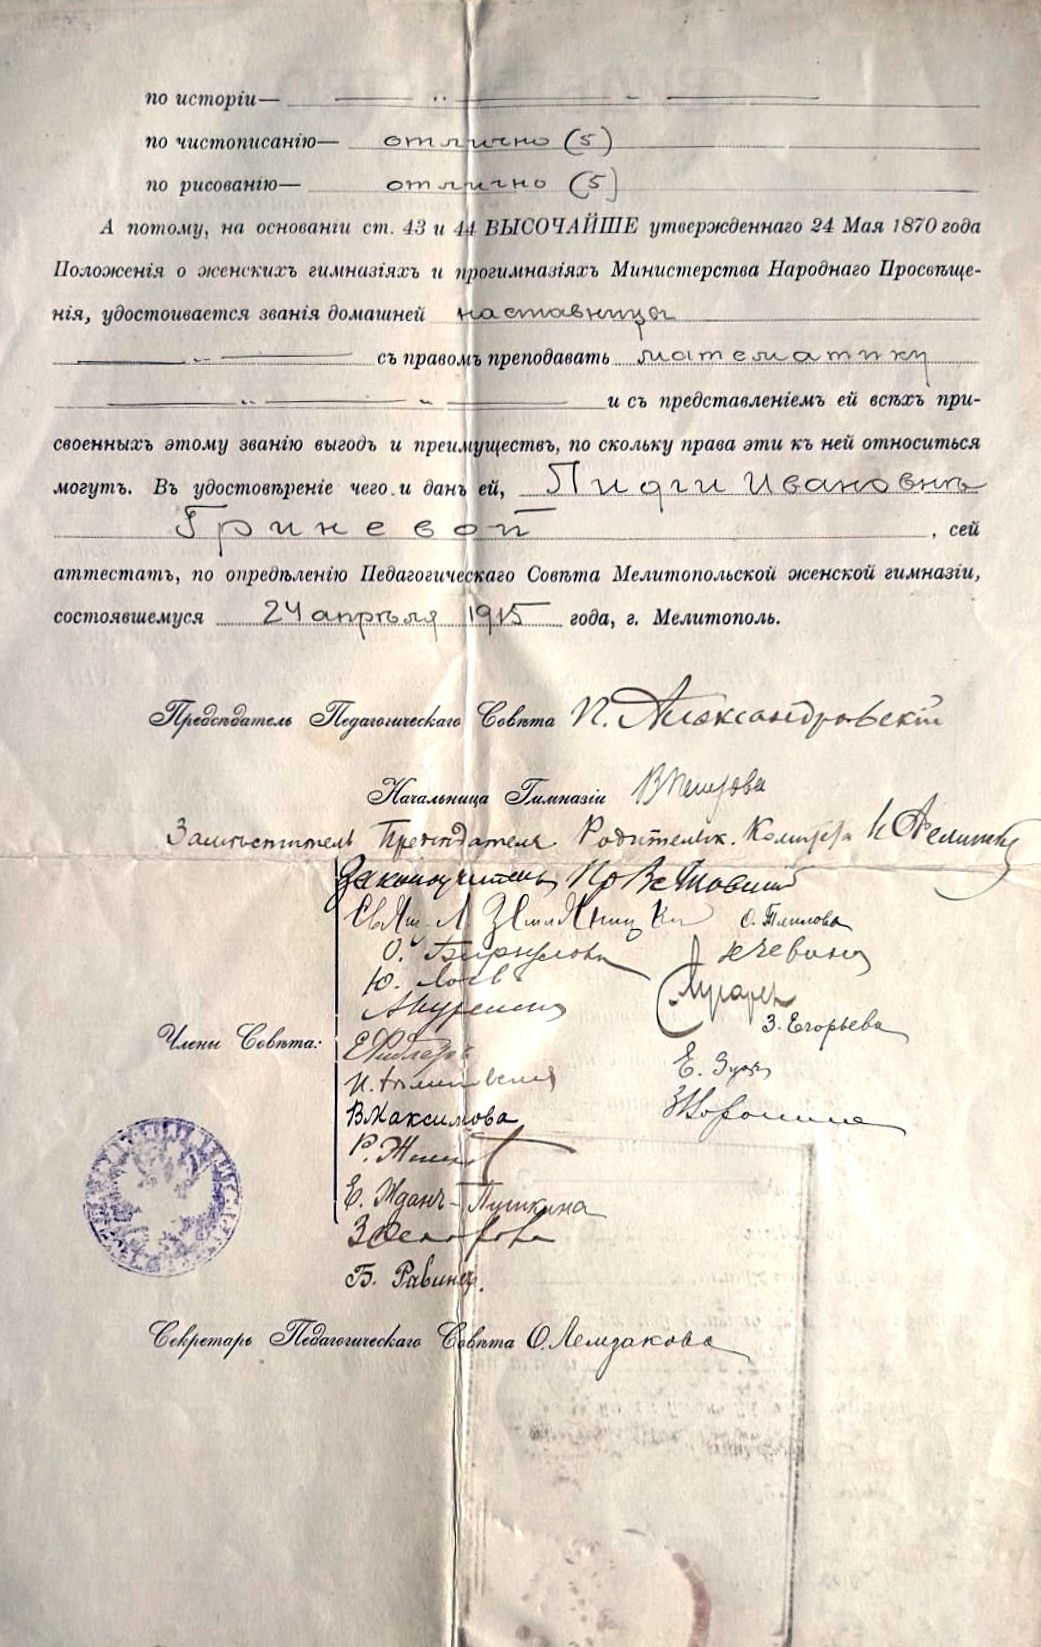 по исторіи—
по чистописанію— отлично (5)
по рисованію— отлично (5)
А потому, на основаніи ст. 43 и 44 ВЫСОЧАЙШЕ утвержденнаго 24 Мая 1870 года
Положенія о женскихъ гимназіяхъ и прогимназіяхъ Министерства Народнаго Просвѣще-
нія, удостоивается званія домашней наставницы
съ правомъ преподавать математику
и съ представленіемъ ей всѣхъ при-
своенныхъ этому званію выгодъ и преимуществъ, по скольку права эти къ ней относиться
могутъ. Въ удостовѣреніе чего и данъ ей, Лидіи Ивановнѣ
Гриневой, сей
аттестатъ, по опредѣленію Педагогическаго Совѣта Мелитопольской женской гимназіи,
состоявшемуся 24 апрѣля 1915 года, г. Мелитополь.
Предсѣдатель Педагогическаго Совѣта П. Александровскій
Начальница Гимназіи В Петрова
Замѣститель Предсѣдателя Родительск. Комитета
Законоучитель
О.
Ю.
З. Егорьева
Члены Совѣта:
Е.
В Максимова
Р.
Е. Жданъ-Пушкина
З Федорова
Б. Равинг.
Секретарь Педагогическаго Совѣта О. Лемзакова